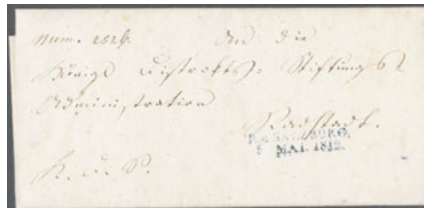 Num. 1828. An die
Königl. Distrikts-Stiftungs
Administration
Radstadt.
R. SALZBURG.
5 MAI. 1812.
K. d. S.